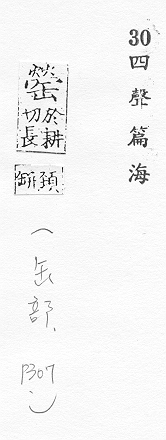 30 四聲篇海
罃 於耕切長
頸缾
(缶部, P307)